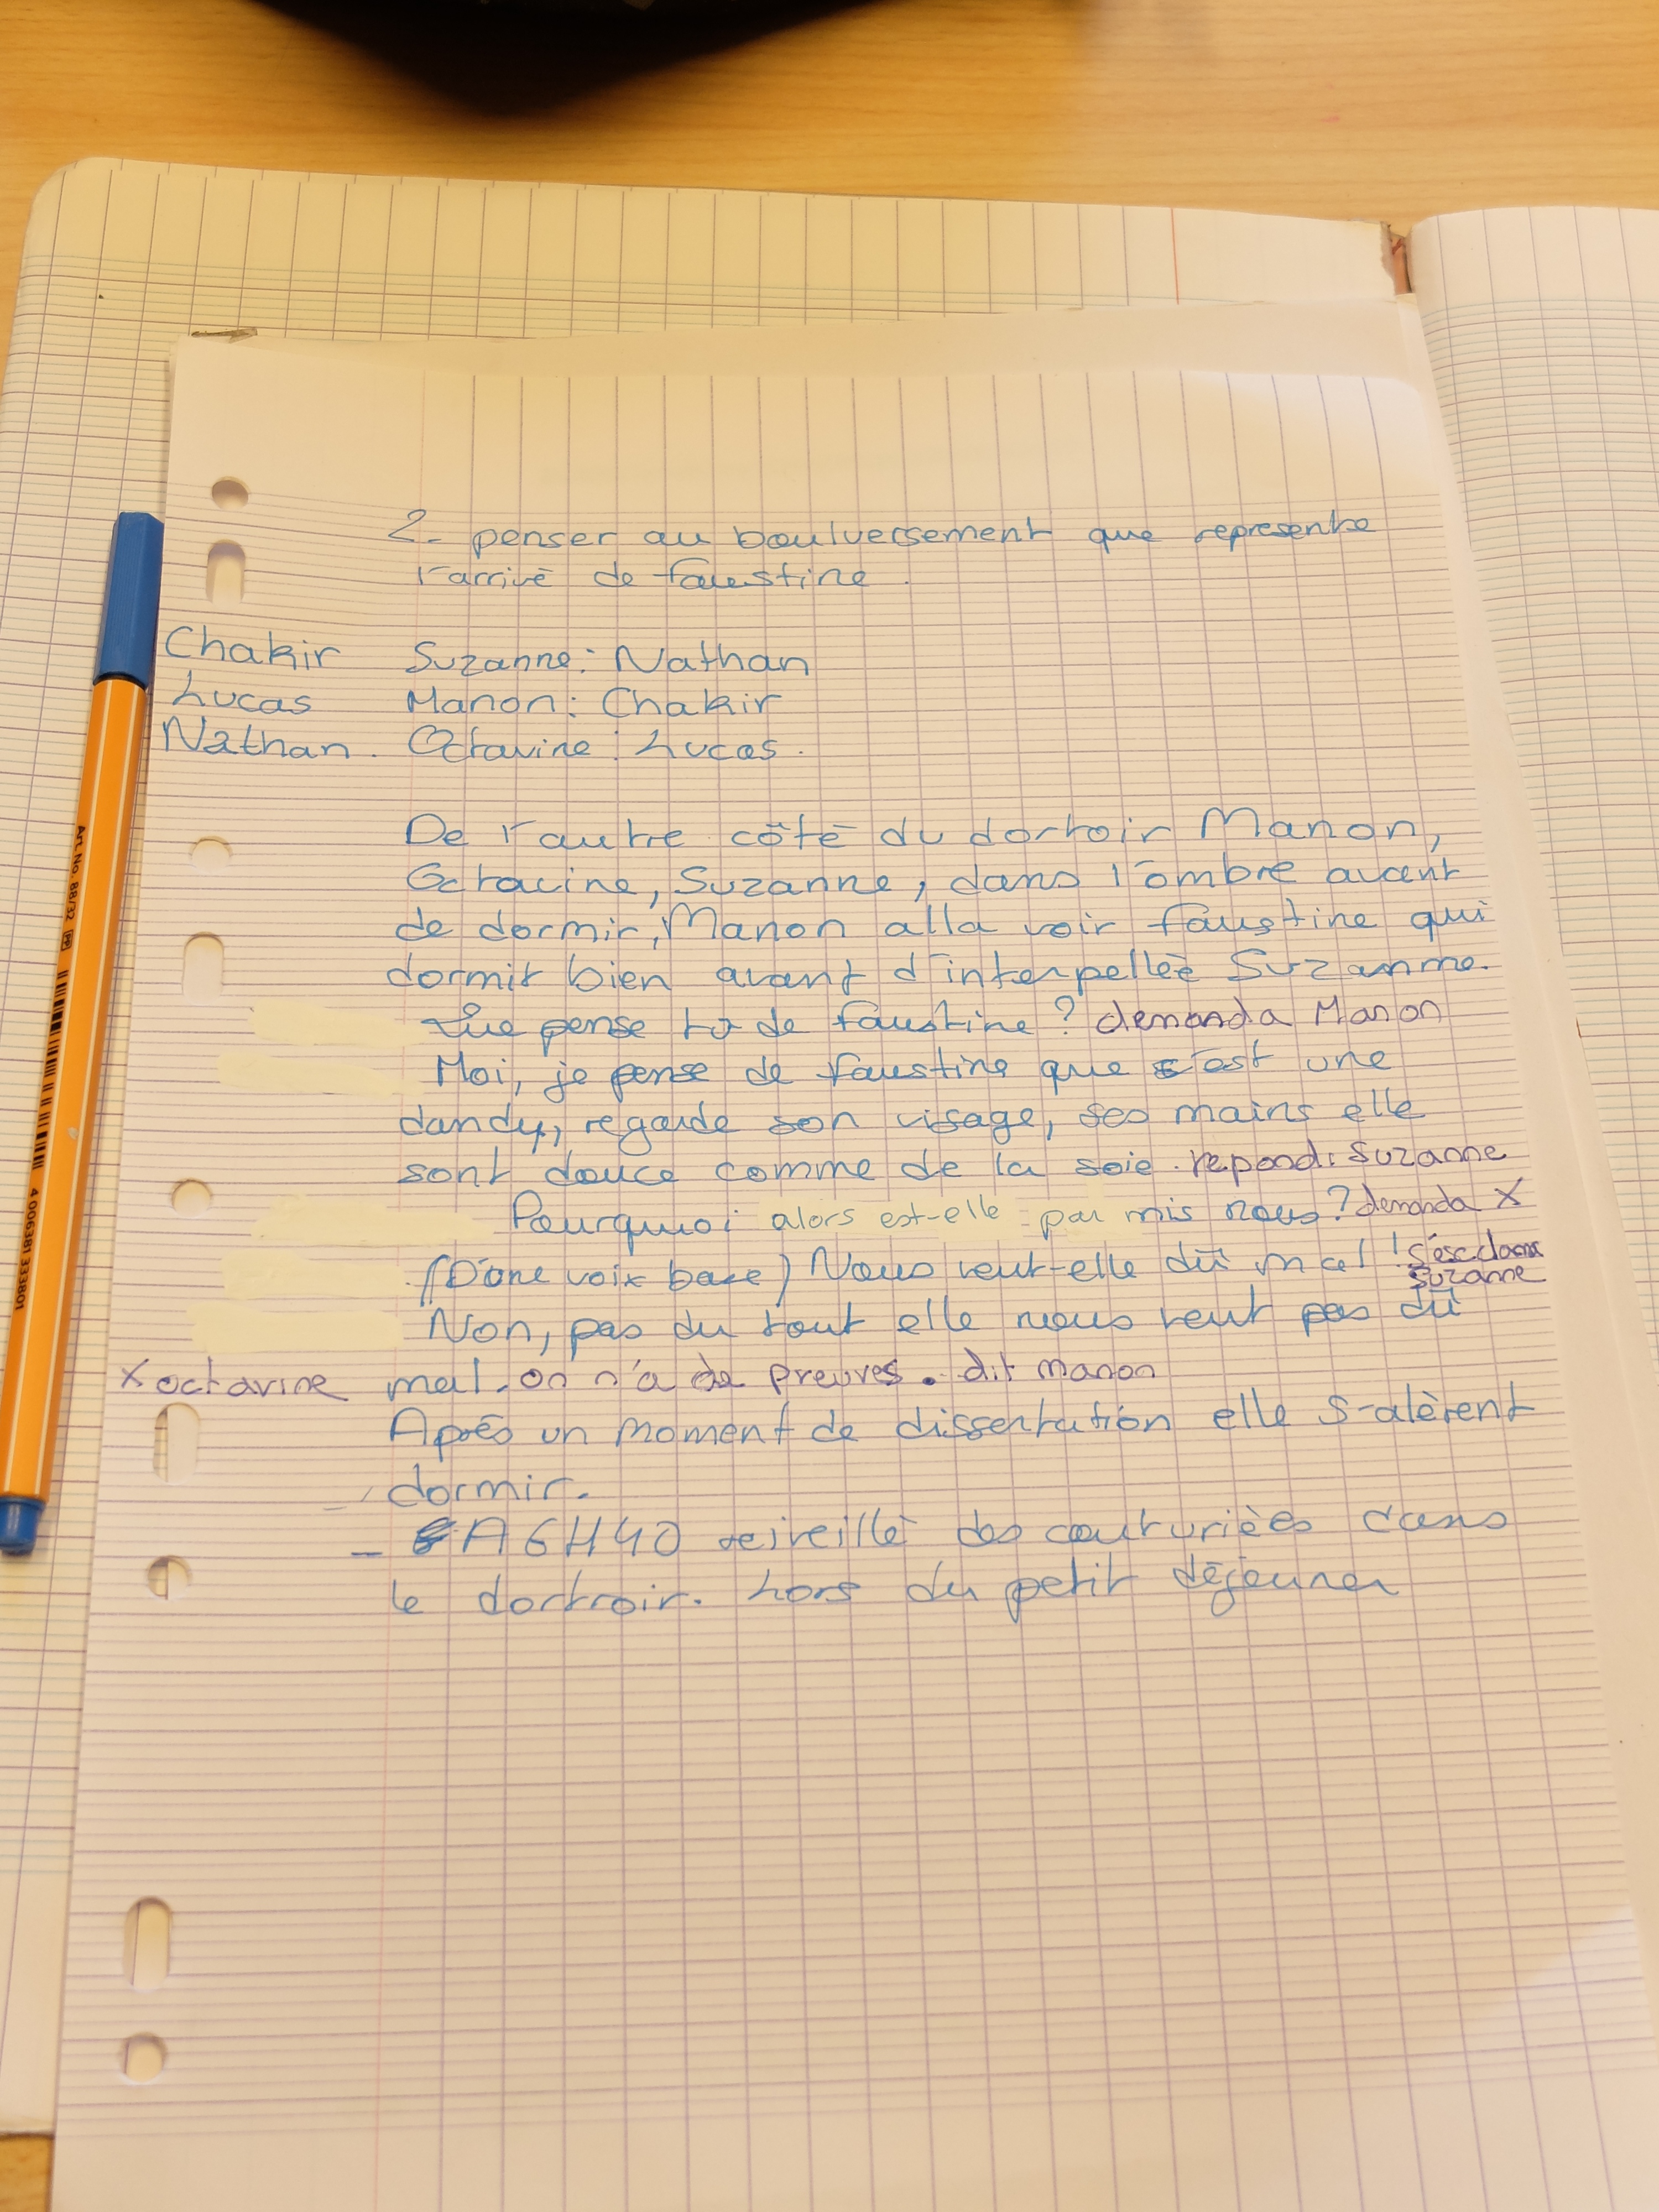 2- penser au boulversement que represente
l'arrivé de faustine.
Chakir
Lucas
Nathan.
Suzanne: Nathan
Manon: Chakir
Octavine: Lucas.
De l'autre côté du dortoir Manon,
Octavine, Suzanne, dans l'ombre avant
de dormir, Manon alla voir faustine qui
dormit bien avant d'interpelleé Suzanne.
Que pense tu de faustine? demanda Manon
Moi, je pense de faustine que c'est une
dandy, regarde son visage, ses mains elle
sont douce comme de la soie. repondi Suzanne
Pourquoi alors est-elle par mis nous? demanda X
(D'une voix base) Nous veut-elle dû mal! s'esclama
Suzanne
Non, pas du tout elle nous veut pas dû
X octavine
mal. on n'a de preuves. dit manon
Après un moment de dissertation elle s'alèrent
dormir.
- A 6H40 reiveillé des couturièes dans
le dortroir. Lors du petit déjeuner
Art. No. 88/32
4 006381 333801